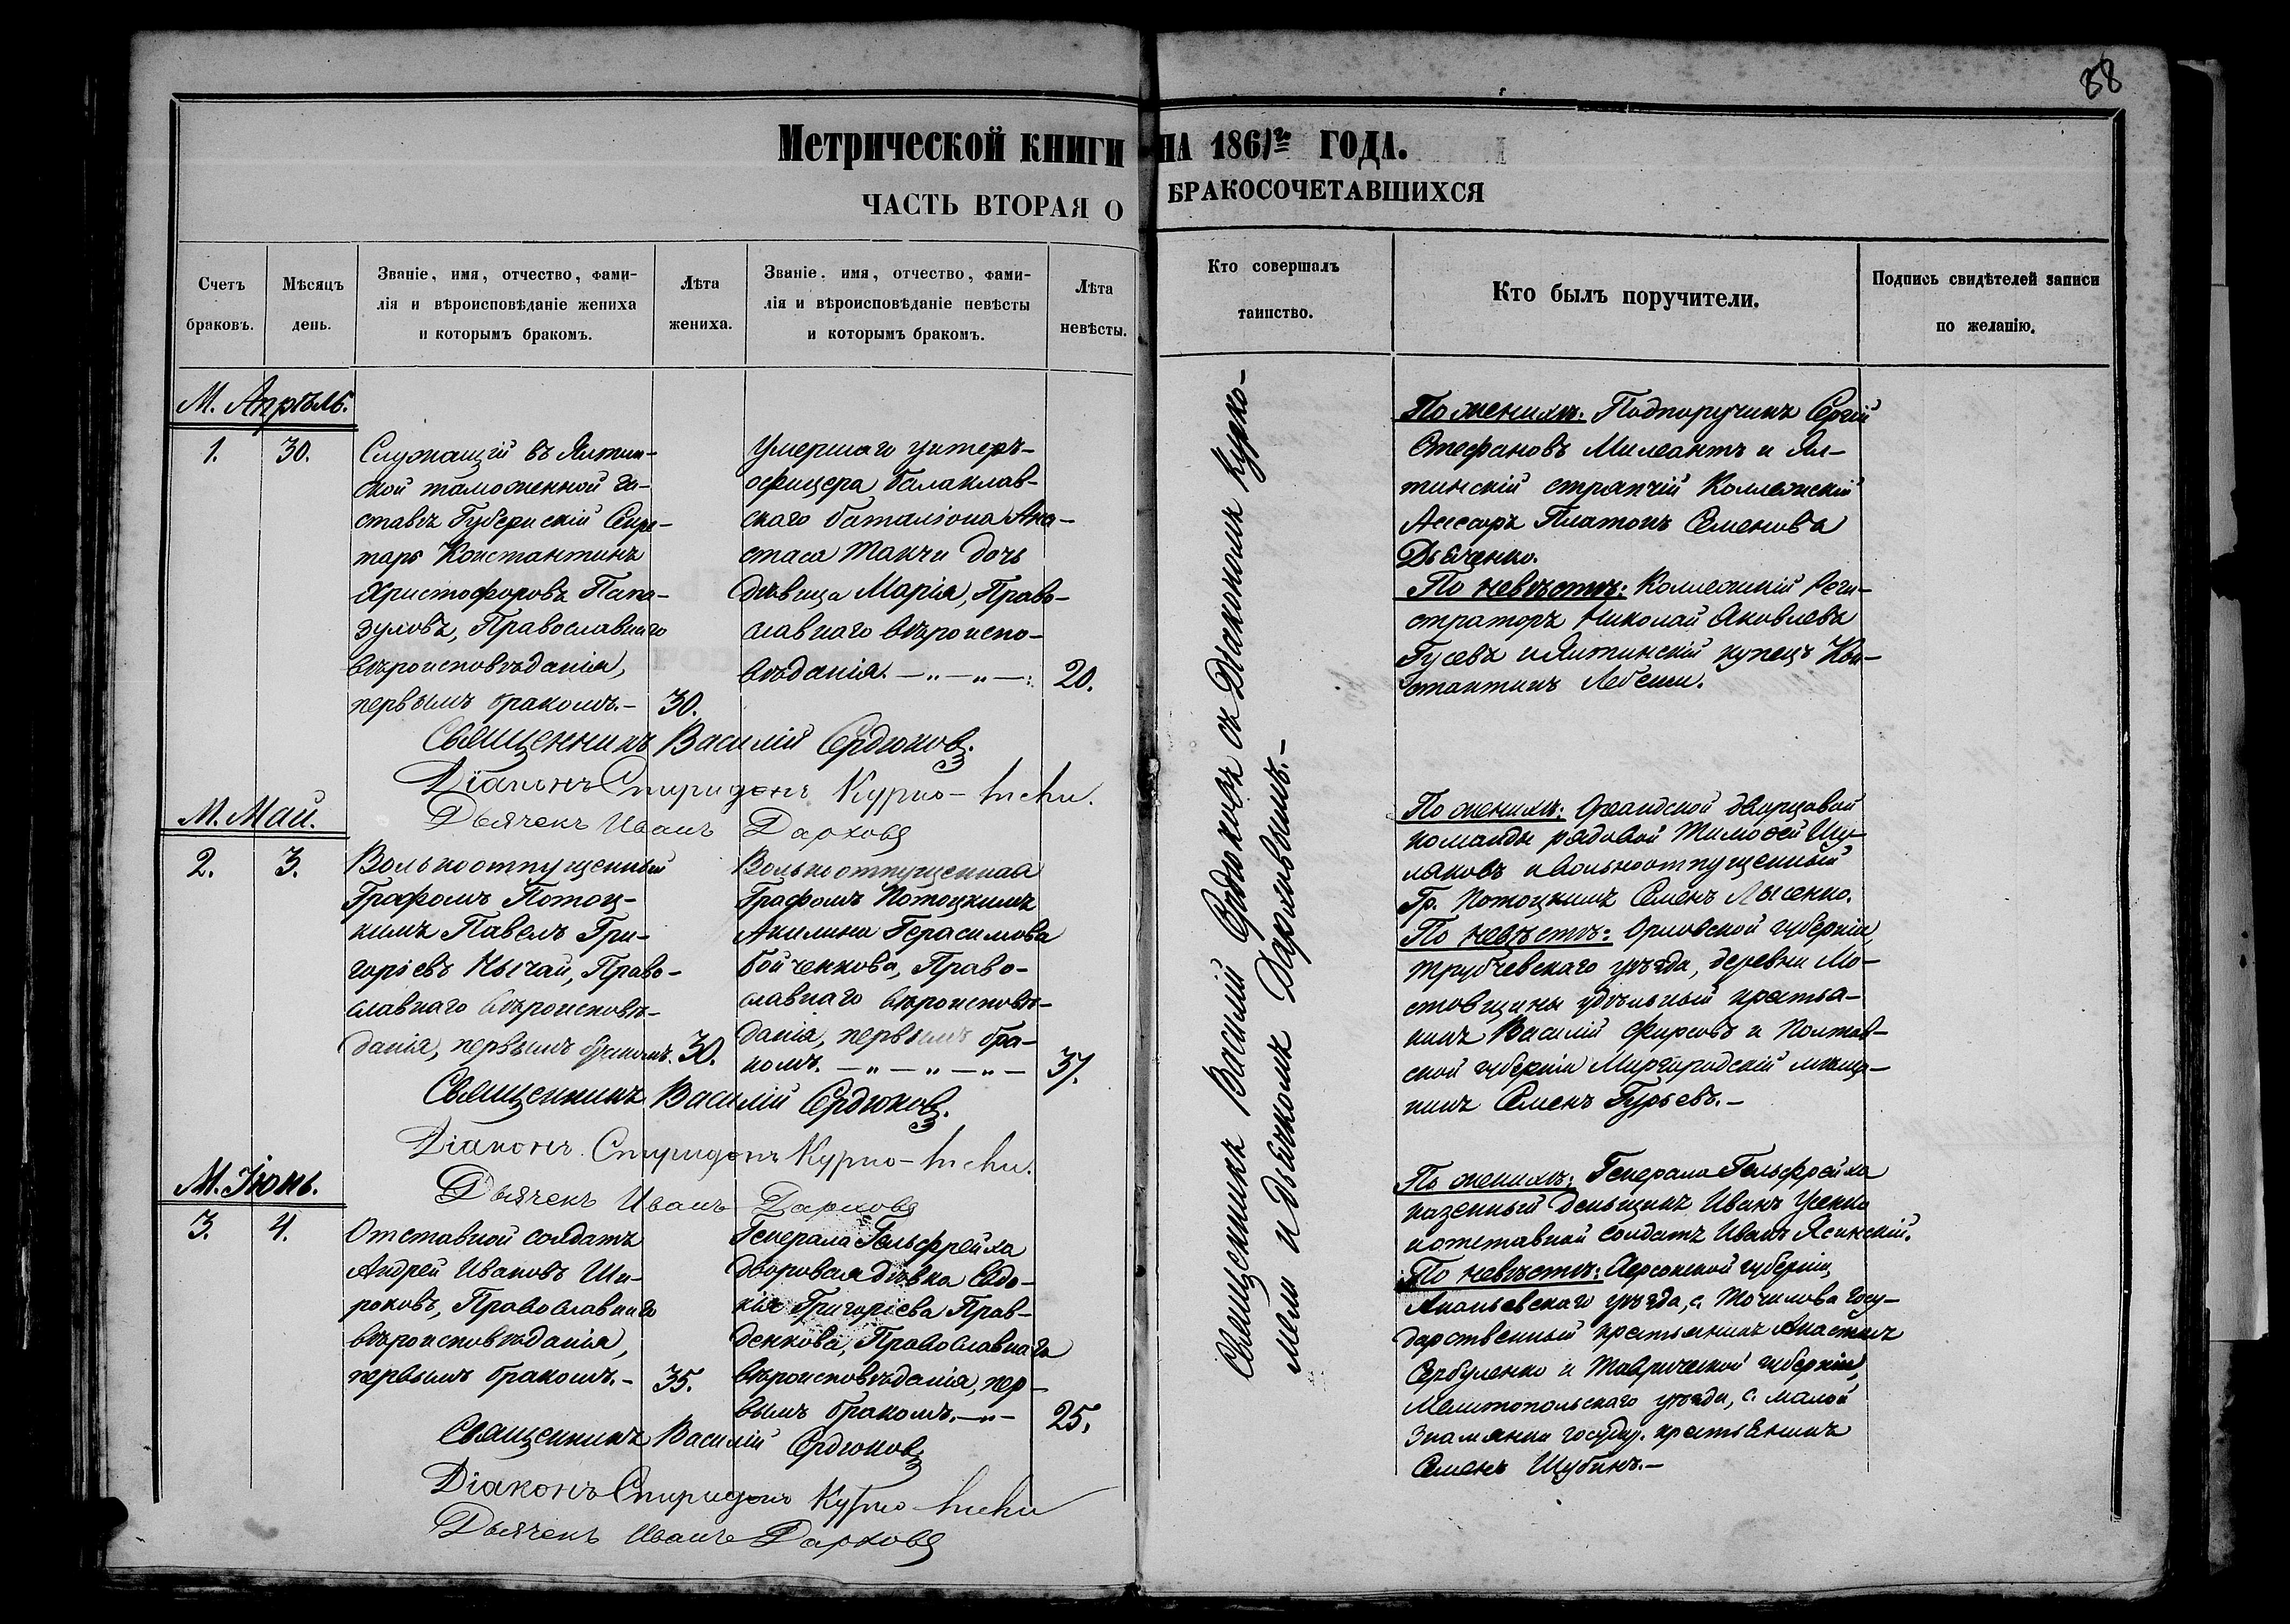 88
Метрической книги на 1861го года.
ЧАСТЬ ВТОРАЯ О БРАКОСОЧЕТАВШИХСЯ
Счетъ
браковъ.
Мѣсяцъ
день.
Званіе, имя, отчество, фами-
лія и вѣроисповѣданіе жениха
и которымъ бракомъ.
Лѣта
жениха.
Званіе, имя, отчество, фами-
лія и вѣроисповѣданіе невѣсты
и которымъ бракомъ.
Лѣта
невѣсты.
Кто совершалъ
таинство.
Кто былъ поручители.
Подпись свидѣтелей записи
по желанію.
М. Апрѣль.
1.
30.
Служащій въ Ялтин-
ской таможенной за-
ставѣ Губернскій Секре-
тарь Константинъ
Христофоровъ Папа-
зуловъ, Православнаго
вѣроисповѣданія,
первымъ бракомъ.-
30.
Умершаго унтеръ-
офицера балаклав-
скаго баталіона Ана-
стаса Такчи дочь
дѣвица Марія, Право-
славнаго вѣроиспо-
вѣданія. — " — " —
20.
Священникъ Василій Сердюковъ.
Діаконъ Спиридонъ Курко-
Дьячекъ Иванъ
По женихѣ: Подпоручикъ Сергій
Стефановъ Милеантъ и Ял-
тинскій стряпчій Коллежскій
Ассесоръ Платонъ Семеновъ
Дьяченко.
По невѣстѣ: Коллежскій Реги-
страторъ Николай Яковлевъ
Гусевъ и Ялтинскій купецъ Кон-
стантинъ
Священникъ Василій Сердюковъ съ Діакономъ Курко-
и дьячкомъ
М. Май.
2.
3.
Вольноотпущенный
Графомъ Потоц-
кимъ Павелъ Гри-
горіевъ Нычай, Право-
славнаго вѣроисповѣ-
данія, первымъ бракомъ.
30.
Вольноотпущенная
Графомъ Потоцкимъ
Акилина Герасимова
Бойченкова, Право-
славнаго вѣроисповѣ-
данія, первымъ бра-
комъ. — " — " — " —
37.
Священникъ Василій Сердюковъ.
Діаконъ Спиридонъ Курко-
Дьячекъ Иванъ
По женихѣ: Ореандской дворцовой
команды рядовой Тимофей Шу-
ляковъ и вольноотпущенный
Гр. Потоцкимъ Семенъ Лысенко.
По невѣстѣ: Орловской губерніи,
Трубчевскаго уѣзда, деревни Мо-
стовщины удѣльный крестья-
нинъ Василій Фирсовъ и Полтав-
ской губерніи Миргородскій мѣща-
нинъ Семенъ Гурьевъ.-
М. Іюнь.
3.
4.
Отставной солдатъ
Андрей Ивановъ Ши-
роковъ, Православнаго
вѣроисповѣданія,
первымъ бракомъ.-
35.
Генерала Гельфрейха
дворовая дѣвка Евдо-
кія Григоріева Прав-
денкова, Православнаго
вѣроисповѣданія, пер-
вымъ бракомъ. — " —
25.
Священникъ Василій Сердюковъ
Діаконъ Спиридонъ Курко-
Дьячекъ Иванъ
По женихѣ: Генерала Гельфрейха
казенный деньщикъ Иванъ Усенко
и отставной солдатъ Иванъ Ясинскій.
По невѣстѣ: Херсонской губерніи,
Ананьевскаго уѣзда, с. Точилова госу-
дарственный крестьянинъ
Сербуленко и Таврической губерніи,
Мелитопольскаго уѣзда, с. малой
Знамянки государ. крестьянинъ
Семенъ Шубинъ.-